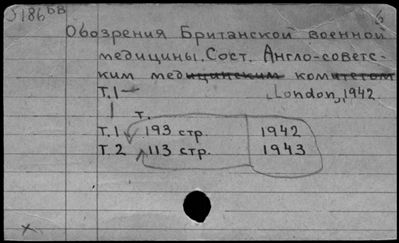 J186 BB
6
Обозрения Британской военной
медицины. Сост. Англо-советс-
ким медицинским комитетом
Т.1— London, 1942.
т.
Т.1 193 стр. 1942
Т.2 113 стр. 1943
x